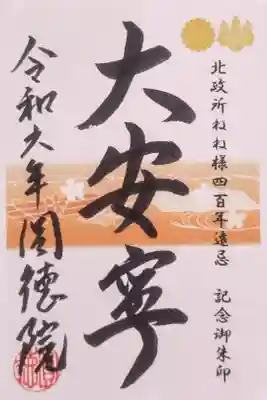 北政所ねね様四百年遠忌 記念御朱印
大安寧
令和六年圓徳院